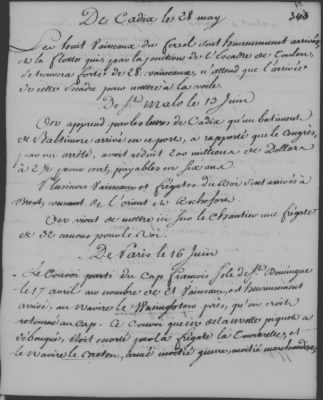 De Cadix le 28 may
343
Les huit Vaisseaux du feral sont heureusement arrivés,
et la flotte qui par la jonction de l'Escadre de Toulon,
se trouvera forte de 28. vaisseaux, n'attend que l'arrivée
de cette Escadre pour mettre à la voile.
De St. Malo le 13 Juin
On apprend par les lettres de Cadix qu'un batiment
de Baltimore arrivé en ce port, a rapporté que le Congrès,
par un arrêté, avoit réduit 200 millions de Dollars
à 2½ pour cent, payables en six ans.
Plusieurs Vaisseaux et frégates du Roi sont arrivés à
Brest, venant de l'orient et Rochefort.
On vient de mettre ici sur le chantier une frégate
de 32 canons pour le Roi.
De Paris le 16 Juin
Le Convoi parti du Cap François Isle de St. Domingue
le 17 avril au nombre de 21 Vaisseaux, est heureusement
arrivé, au navire le Wasington près, qu'on croit
retourné au Cap. Ce Convoi que Mr de la motte piquet a
rejoint, étoit escorté par la frégate la et
le navire le armé moitié guerre, moitié marchandises,